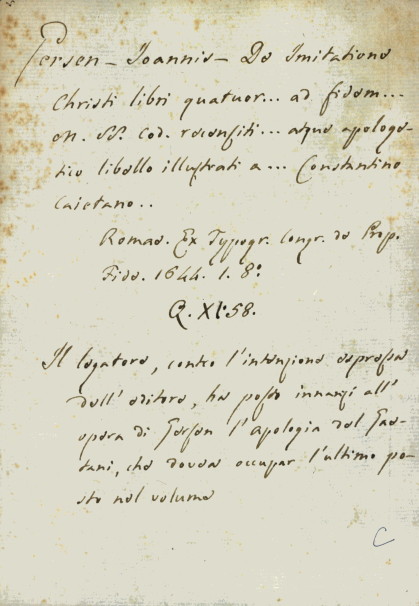 Gersen - Joannis - De Imitatione
Christi libri quatuor... ad fidem...
MSS. cod. recensiti... atque apologe-
tico libello illustrati a... Constantino
Caietano..
Romae. Ex Typogr. Congr. de Prop.
Fide. 1644. 1. 8.°
Q. XI. 58.
Il legatore, contro l'intenzione espressa
dell' editore, ha posto innanzi all'
opera di Gersen l'Apologia del Gae-
tani, che doveva occupar l'ultimo po-
sto nel volume
C